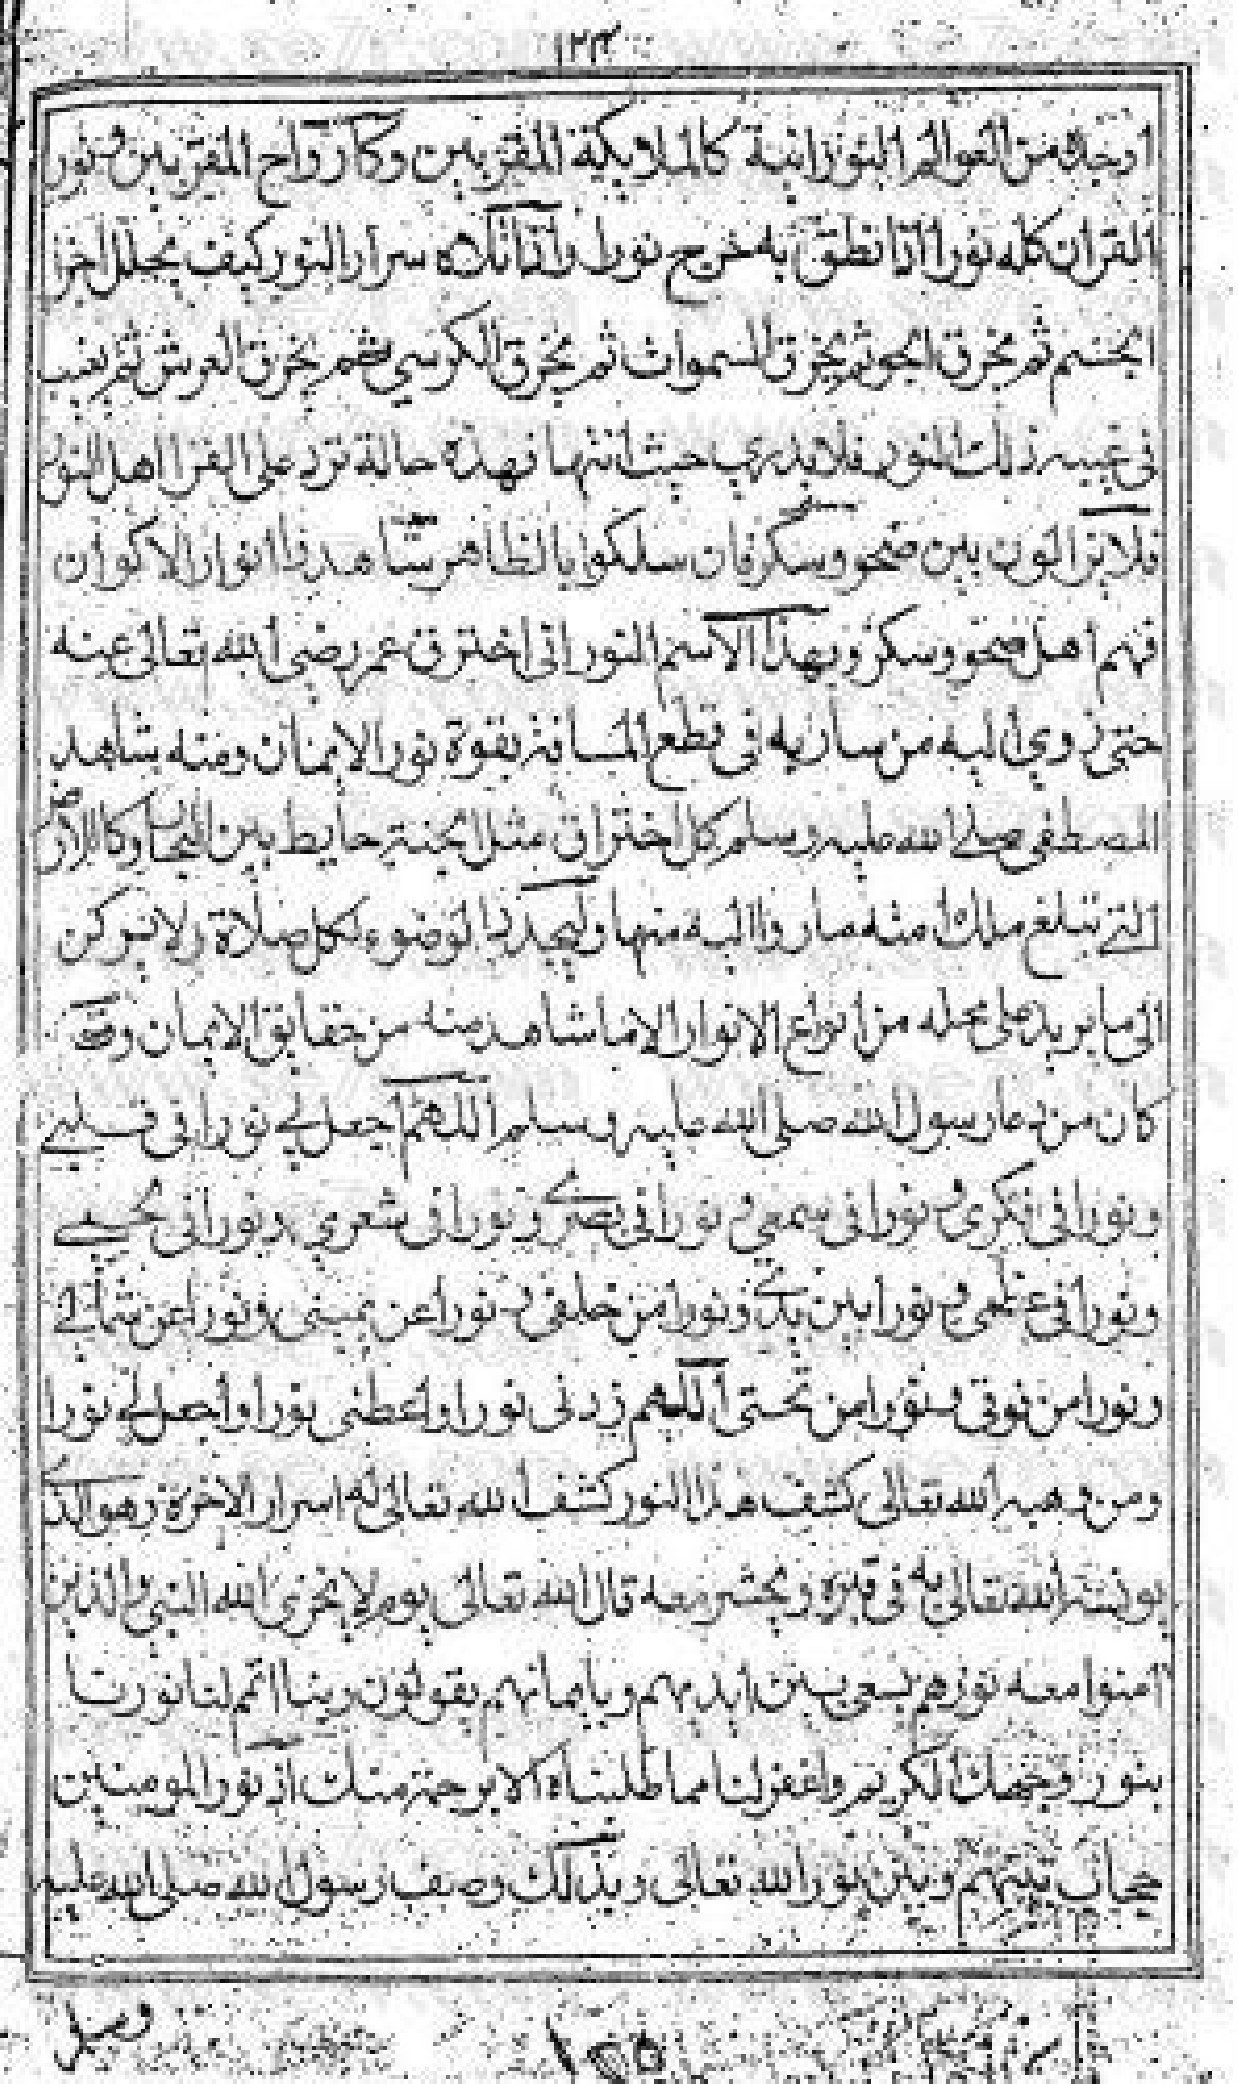 ١٢٣
اوجده من العوالم النورانية كالملايكة المقربين وكارواح المقربين ونور
القران كله نورا اذا نطق به خرج نورا واذا تلاه سرار النور كيف يجلل اجزا
الجسم ثم يخرق الجو ثم يخرق السموات ثم يخرق الكرسي ثم يخرق العرش ثم يغيب
في غيبه ذلك النور فلا يدري حيث انتها فهذه حالة ترد على القرا اهل النور
فلا يزالون بين صحو وسكر فان سلكوا بالظاهر شاهدوا انوار الاكوان
فهم اهل صحو وسكر وبهذا الاسم النوراني اخترق عمر رضي الله تعالى عنه
حتى روي اليه من سار به في قطع المسافة بقوة نور الايمان ومنه شاهد
المصطفى صلى الله عليه وسلم كل اختراق مثل الجنة حايط بين النجار وكالارض
التي تبلغ ملك امته ماروا اليه منها وليجدد الوضوء لكل صلاة ولا يركن
الى ما يريد على محله من انواع الانوار الا ما شاهد منه من حقايق الايمان وقد
كان من دعا رسول الله صلى الله عليه وسلم اللهم اجعل لي نورا في قلبي
ونورا في فكري ونورا في سمعي ونورا في بصري ونورا في شعري ونورا في مخي
ونورا في عظمي ونورا بين يدي ونورا من خلفي ونورا عن يميني ونورا عن شمالي
ونورا من فوقي ونورا من تحتي اللهم زدني نورا واعطني نورا واجعل لي نورا
ومن وهبه الله تعالى كشف هذا النور كشف الله تعالى له اسرار الاخرة وهو الذي
يونسه الله تعالى به في قبره ويحشر معه قال الله تعالى يوم لا يخزي الله النبي والذين
امنوا معه نورهم يسعى بين ايديهم وبايمانهم يقولون ربنا اتمم لنا نورنا
بنور وجهك الكريم واغفر لنا مما طلبناه الا برحمة منك اذ نور المومنين
حجاب بينهم وبين نور الله تعالى وبذلك وصف رسول الله صلى الله عليه
وسلم